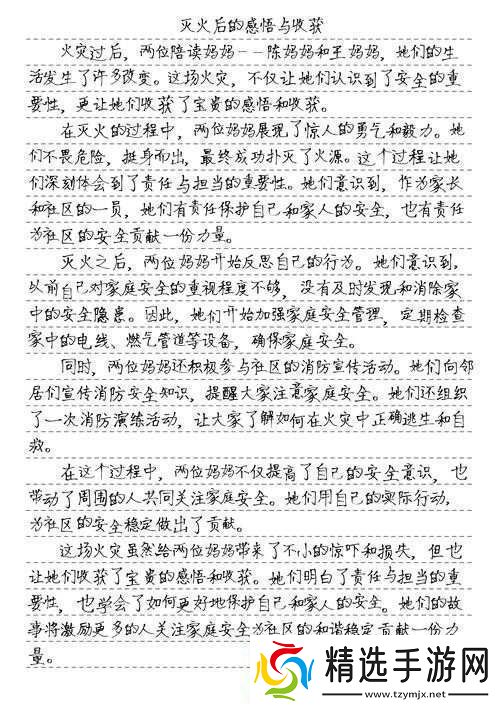 灭火后的感悟与收获
火灾过后，两位陪读妈妈——陈妈妈和王妈妈，她们的生
活发生了许多改变。这场火灾，不仅让她们认识到了安全的重
要性，更让她们收获了宝贵的感悟和收获。
在灭火的过程中，两位妈妈展现了惊人的勇气和毅力。她
们不畏危险，挺身而出，最终成功扑灭了火源。这个过程让她
们深刻体会到了责任与担当的重要性。她们意识到，作为家长
和社区的一员，她们有责任保护自己和家人的安全，也有责任
为社区的安全贡献一份力量。
灭火之后，两位妈妈开始反思自己的行为。她们意识到，
以前自己对家庭安全的重视程度不够，没有及时发现和消除家
中的安全隐患。因此，她们开始加强家庭安全管理，定期检查
家中的电线、燃气管道等设备，确保家庭安全。
同时，两位妈妈还积极参与社区的消防宣传活动。她们向邻
居们宣传消防安全知识，提醒大家注意家庭安全。她们还组织
了一次消防演练活动，让大家了解如何在火灾中正确逃生和自
救。
在这个过程中，两位妈妈不仅提高了自己的安全意识，也
带动了周围的人共同关注家庭安全。她们用自己的实际行动，
为社区的安全稳定做出了贡献。
这场火灾虽然给两位妈妈带来了不小的惊吓和损失，但也
让她们收获了宝贵的感悟和收获。她们明白了责任与担当的重
要性，也学会了如何更好地保护自己和家人的安全。她们的故
事将激励更多的人关注家庭安全为社区的和谐稳定贡献一份力
量。
精选手游网
www.tzymjx.net